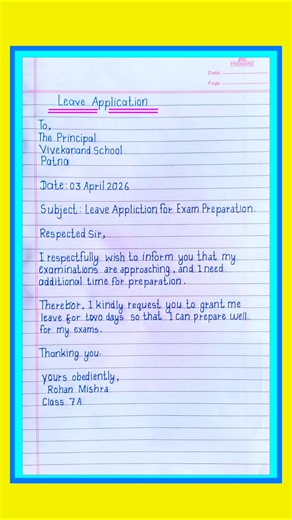 Date
Page
Leave Application
To,
The Principal
Vivekanand School
Patna
Date: 03 April 2026
Subject: Leave Appliction for Exam Preparation.
Respected Sir,
I respectfully wish to inform you that my
examinations are approaching, and I need
additional time for preparation.
Therebor, I kindly request you to grant me
leave for two days so that I can prepare well
for my exams.
Thanking you.
yours obediently,
Rohan Mishra
Class 7A